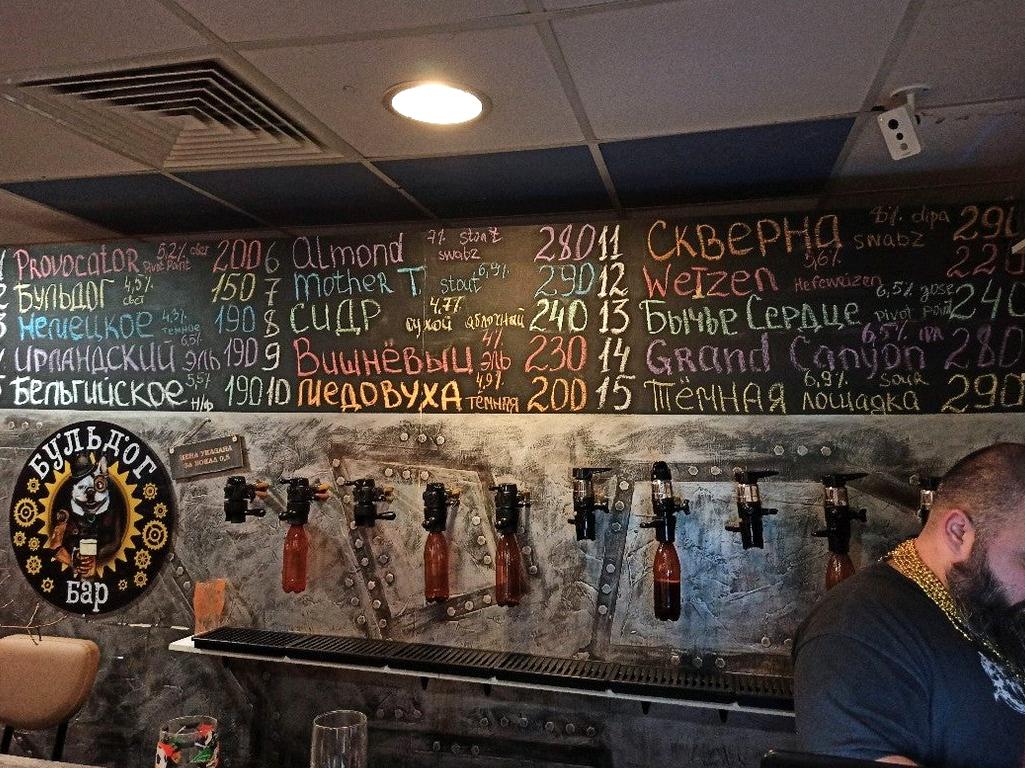 PROVOCATOR 5,2% Pivot Point 200
2 БУЛЬДОГ 4,5% 150
3 Немецкое 4,3% темное 190
ИРЛАНДСКИЙ ЭЛЬ 6,5% 190
Бельгийское 5,5% н/ф 190
6 Almond 7% stout swabz 280
7 Mother T stout 6,9% 290
8 СИДР 4,7% сухой яблочный 240
9 Вишнёвый ЭЛЬ 4% 230
10 Медовуха 4,9% тёмная 200
11 СКВЕРНА 8% dipa swabz 290
12 Weizen 5,6% Hefeweizen 220
13 Бычье Сердце 6,5% gose pivot point 240
14 Grand Canyon 6,5% IPA 280
15 Тёмная лошадка 6,9% 290
БУЛЬДОГ
бар
ЦЕНА УКАЗАНА
ЗА БОКАЛ 0,5